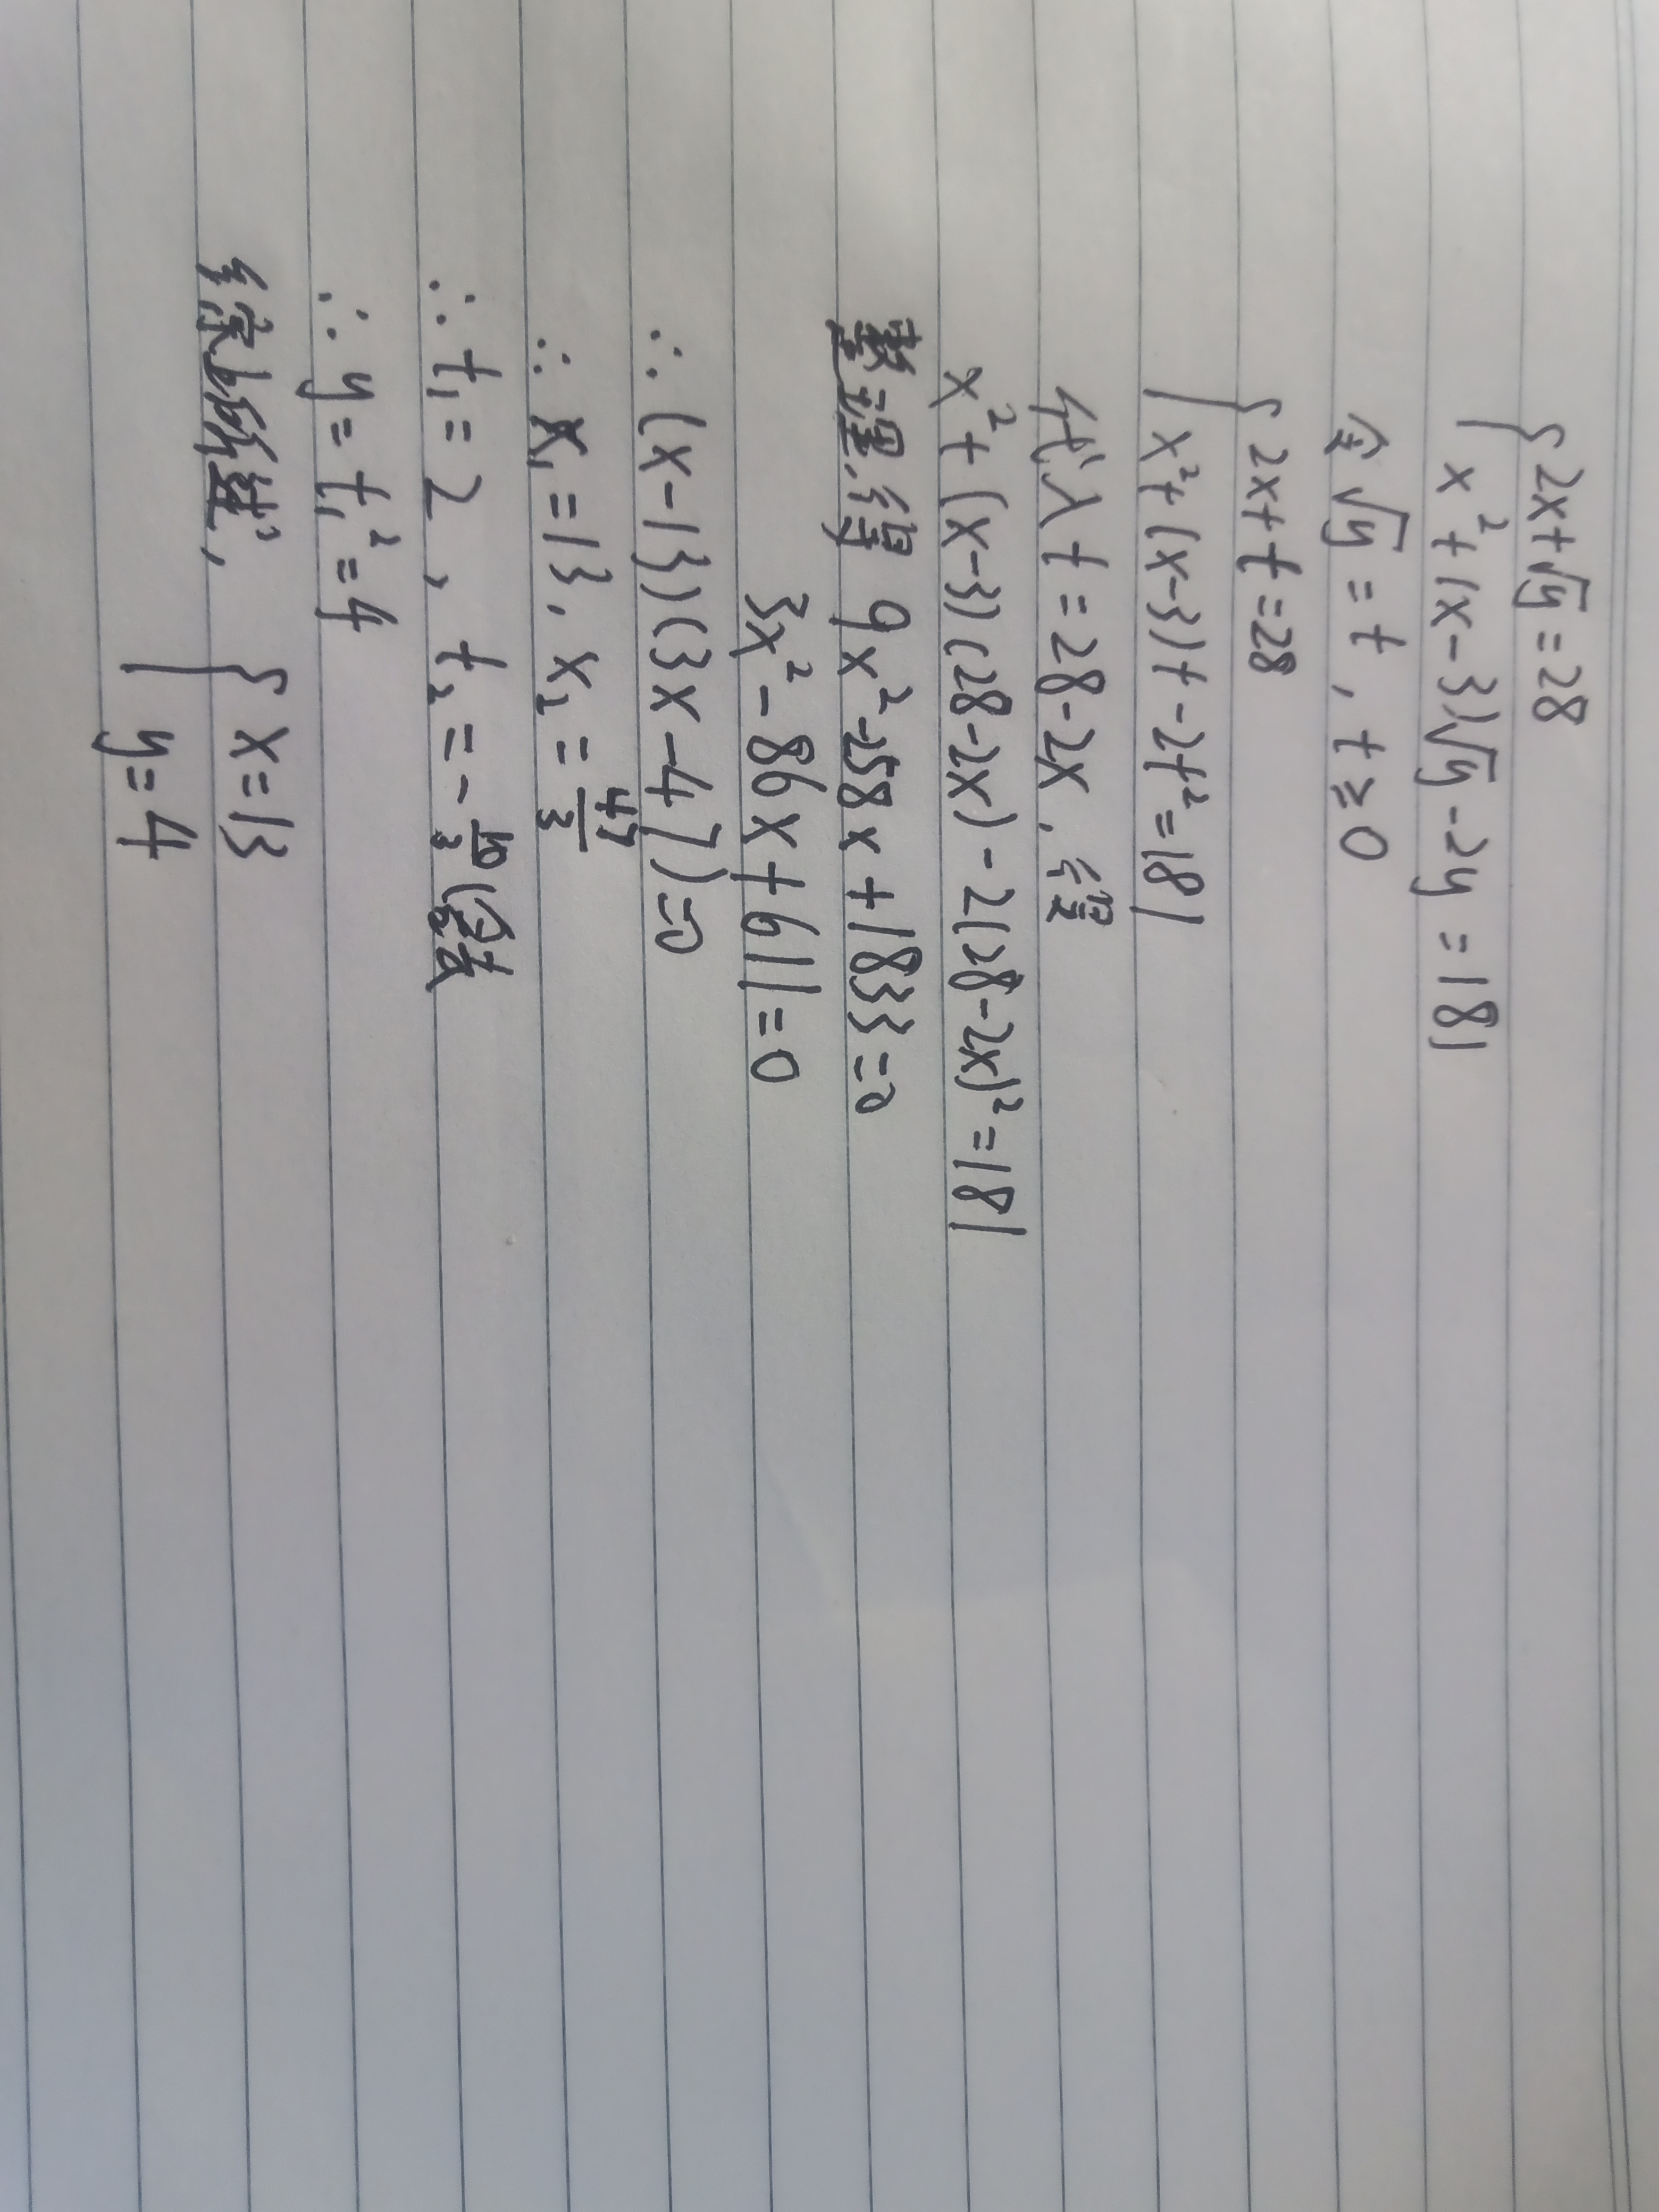 { 2x+√y=28
x²+(x-3)√y-2y=181
令√y=t, t≥0
{ 2x+t=28
x²+(x-3)t-2t²=181
代入t=28-2x,得
x²+(x-3)(28-2x)-2(28-2x)²=181
整理得 9x²-258x+1833=0
3x²-86x+611=0
∴(x-13)(3x-47)=0
∴x₁=13, x₂=47/3
∴t₁=2, t₂=-10/3(舍去
∴y=t₁²=4
综上所述,
{ x=13
y=4